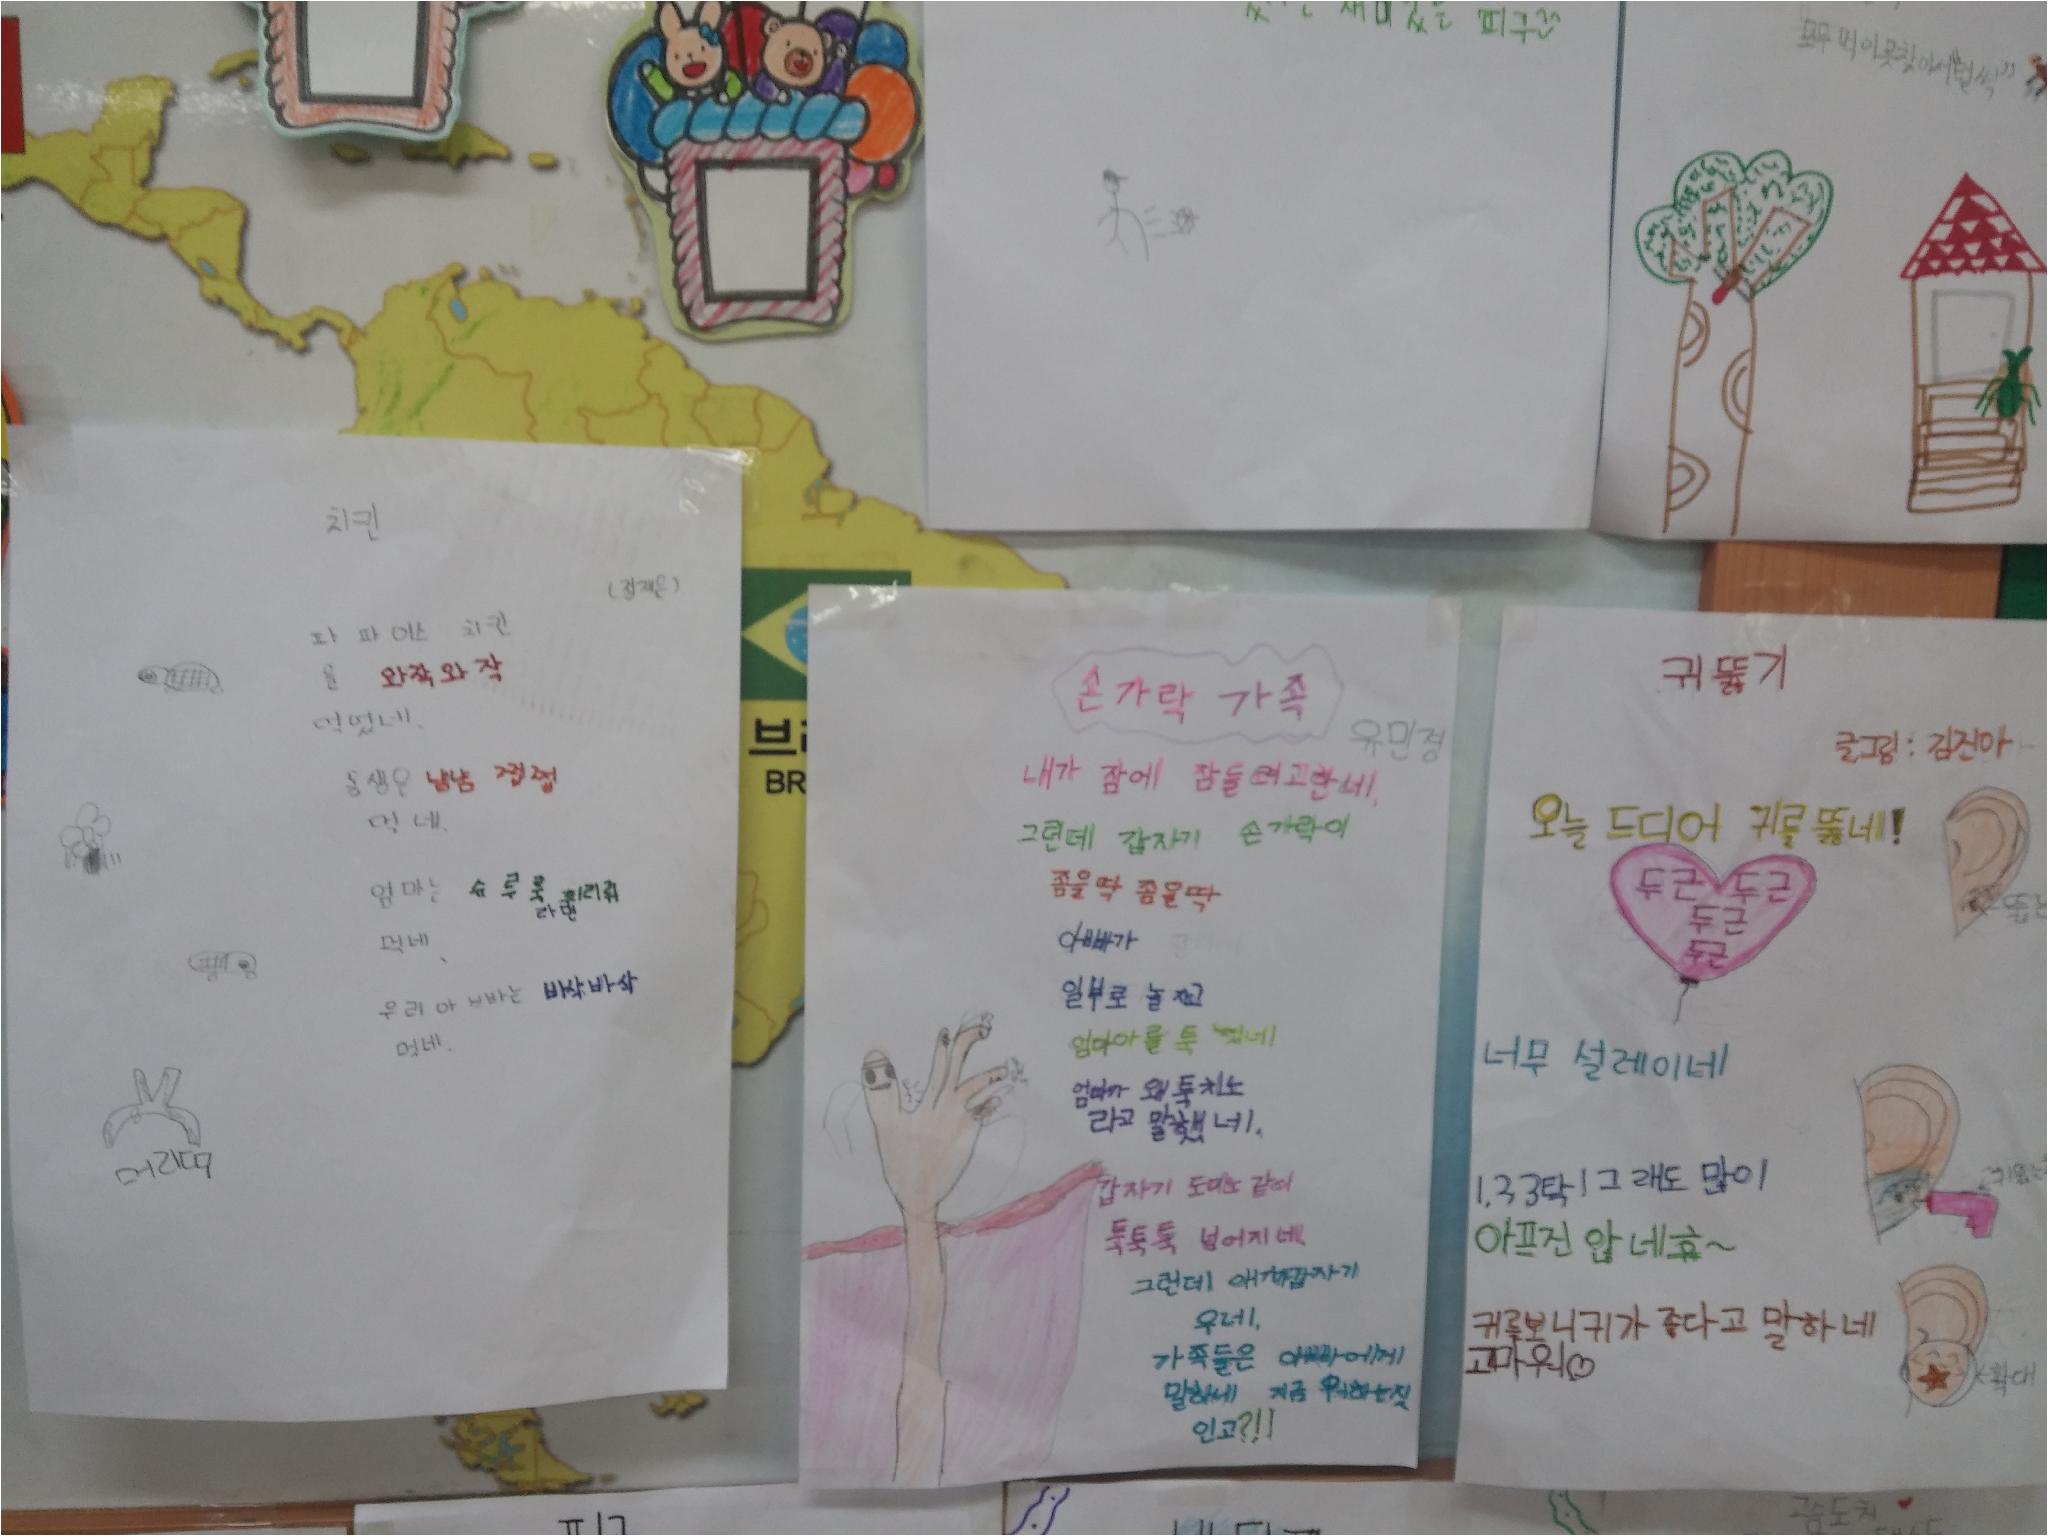 재미있는 피구
치킨
파 파 이스 치킨
을 와작와작
먹었네.
동생은 냠냠 쩝쩝
먹 네.
엄마는 슈루룩 휘리릭
라면
먹네.
우리 아빠는 바삭바삭
먹네.
머리띠
브라
BR
손가락 가족
유민정
내가 잠에 잠들려고한네.
그런데 갑자기 손가락이
좀을딱 좀을딱
아빠가
일부로 놀자고
엄마아를 툭 쳤네
엄마가 왜 툭치노
라고 말했네.
갑자기 도미노 같이
툭툭툭 넘어지네
그런데 애가 갑자기
우네.
가족들은 아빠에게
말하네 지금 뭐하는짓
인고?!!
귀 뚫기
글그림 : 김진아
오늘 드디어 귀를 뚫네!
두근 두근
두근
두근
너무 설레이네
1.2 3탁! 그래도 많이
아프진 않네 휴~
귀를보니귀가 좋다고 말하네
고마워♡
확대
피구
고슴도치